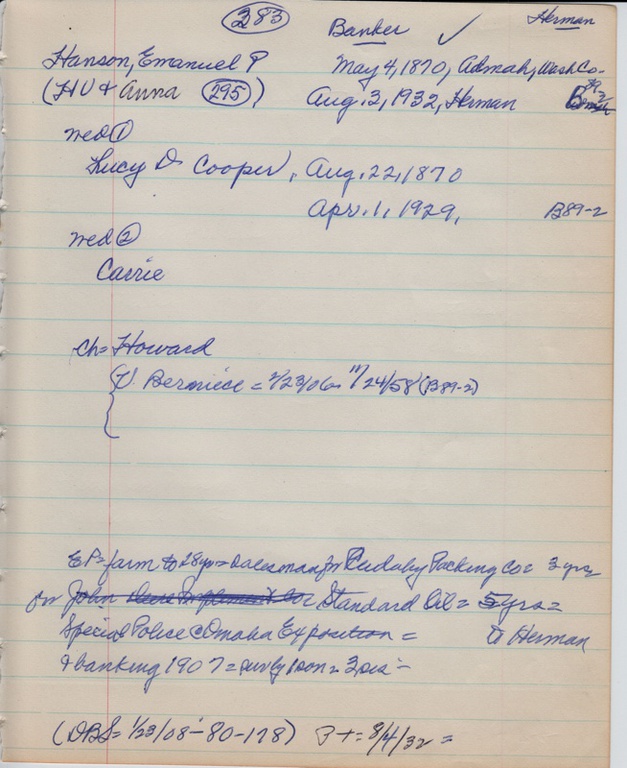 383 Banker ✓ Herman
Hanson, Emanuel P May 4, 1870, Admah, Wash Co-
(HU + Anna 295) Aug. 3, 1932, Herman
med ①
Lucy D Cooper, Aug. 22, 1870
Apr. 1, 1929, B89-2
med ②
Carrie
Ch= Howard
V. Berniece = 2/23/06- 11/24/58 (B89-2)
EP= farm to 28 yr= Salesman for Cudahy Packing Co= 3 yrs
for John Deere Implement Co Standard Oil= 5 yrs=
Special Police @ Omaha Exposition = Herman
+ banking 1907= only son= 3 sis-
(DBS= 1/23/08-80-178) P+= 8/4/32 =